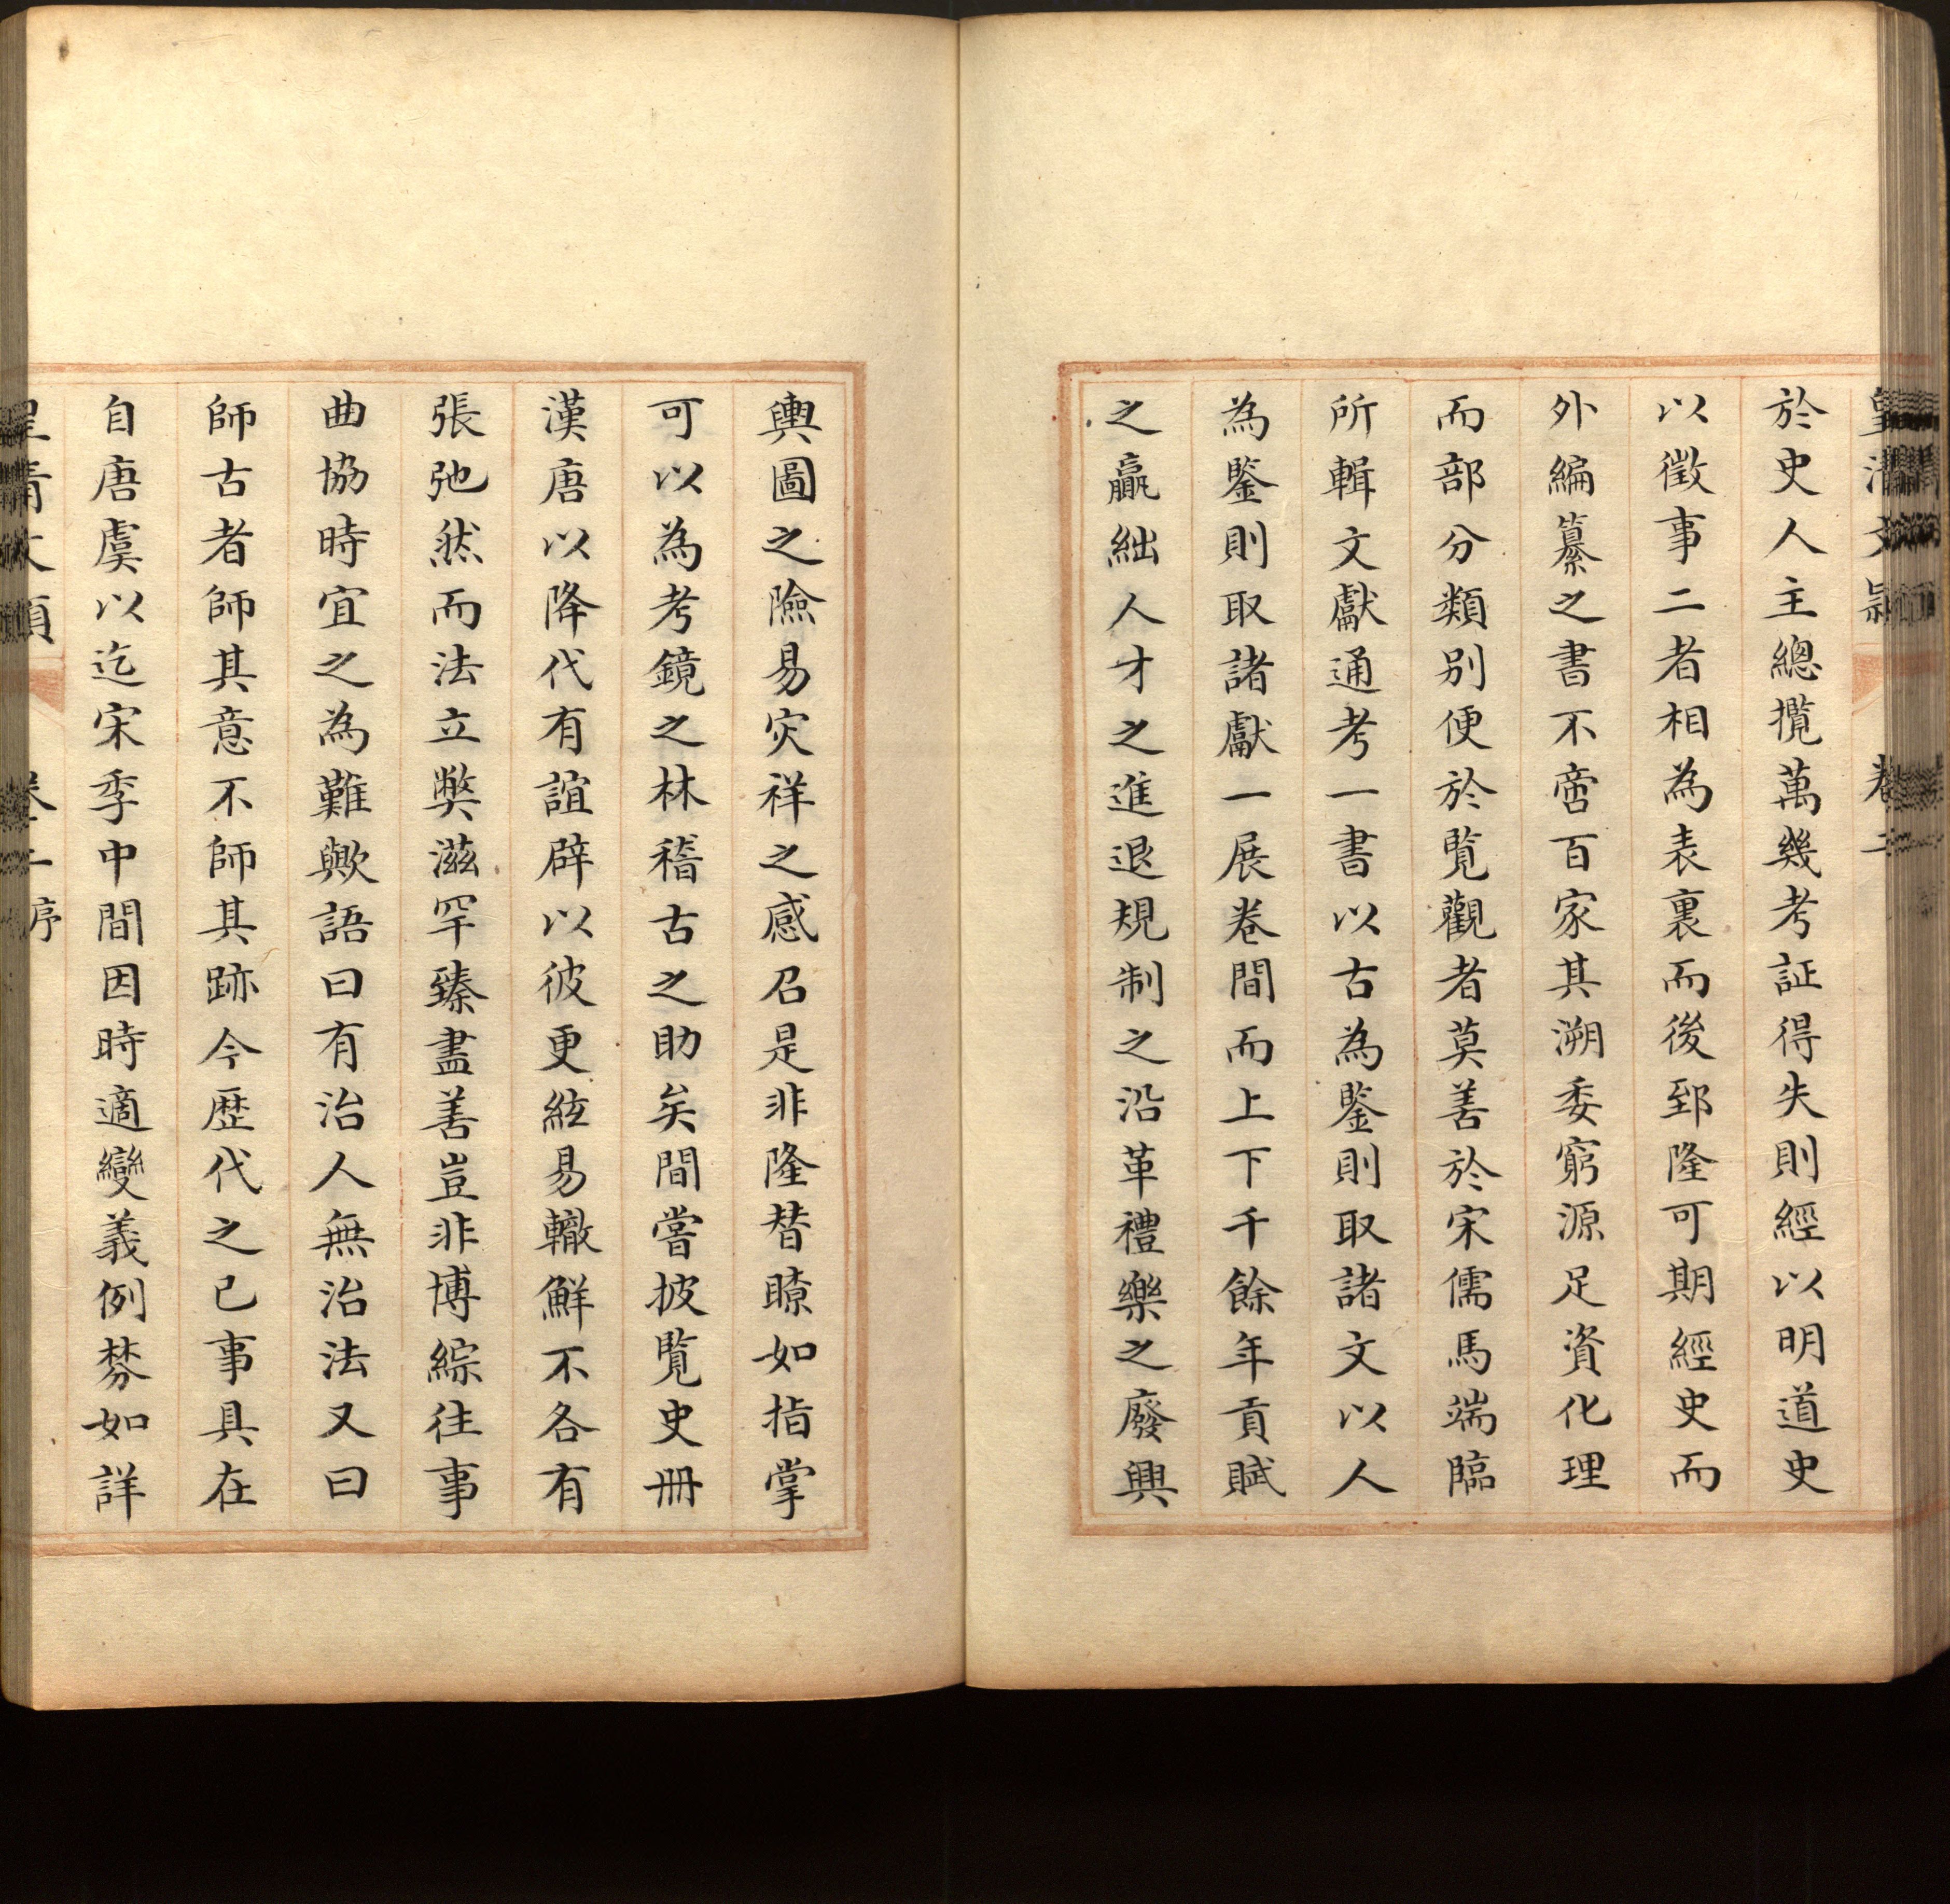 皇清文穎 卷二
於史人主總攬萬幾考証得失則經以明道史
以徵事二者相為表裏而後郅隆可期經史而
外編纂之書不啻百家其溯委窮源足資化理
而部分類別便於覽觀者莫善於宋儒馬端臨
所輯文獻通考一書以古為鑒則取諸文以人
為鑒則取諸獻一展卷間而上下千餘年貢賦
之贏絀人才之進退規制之沿革禮樂之廢興
輿圖之險易灾祥之感召是非隆替瞭如指掌
可以為考鏡之林稽古之助矣間嘗披覽史冊
漢唐以降代有誼辟以彼更絃易轍鮮不各有
張弛然而法立弊滋罕臻盡善豈非博綜往事
曲協時宜之為難歟語曰有治人無治法又曰
師古者師其意不師其跡今歴代之已事具在
自唐虞以迄宋季中間因時適變義例棼如詳
皇清文穎 卷二序